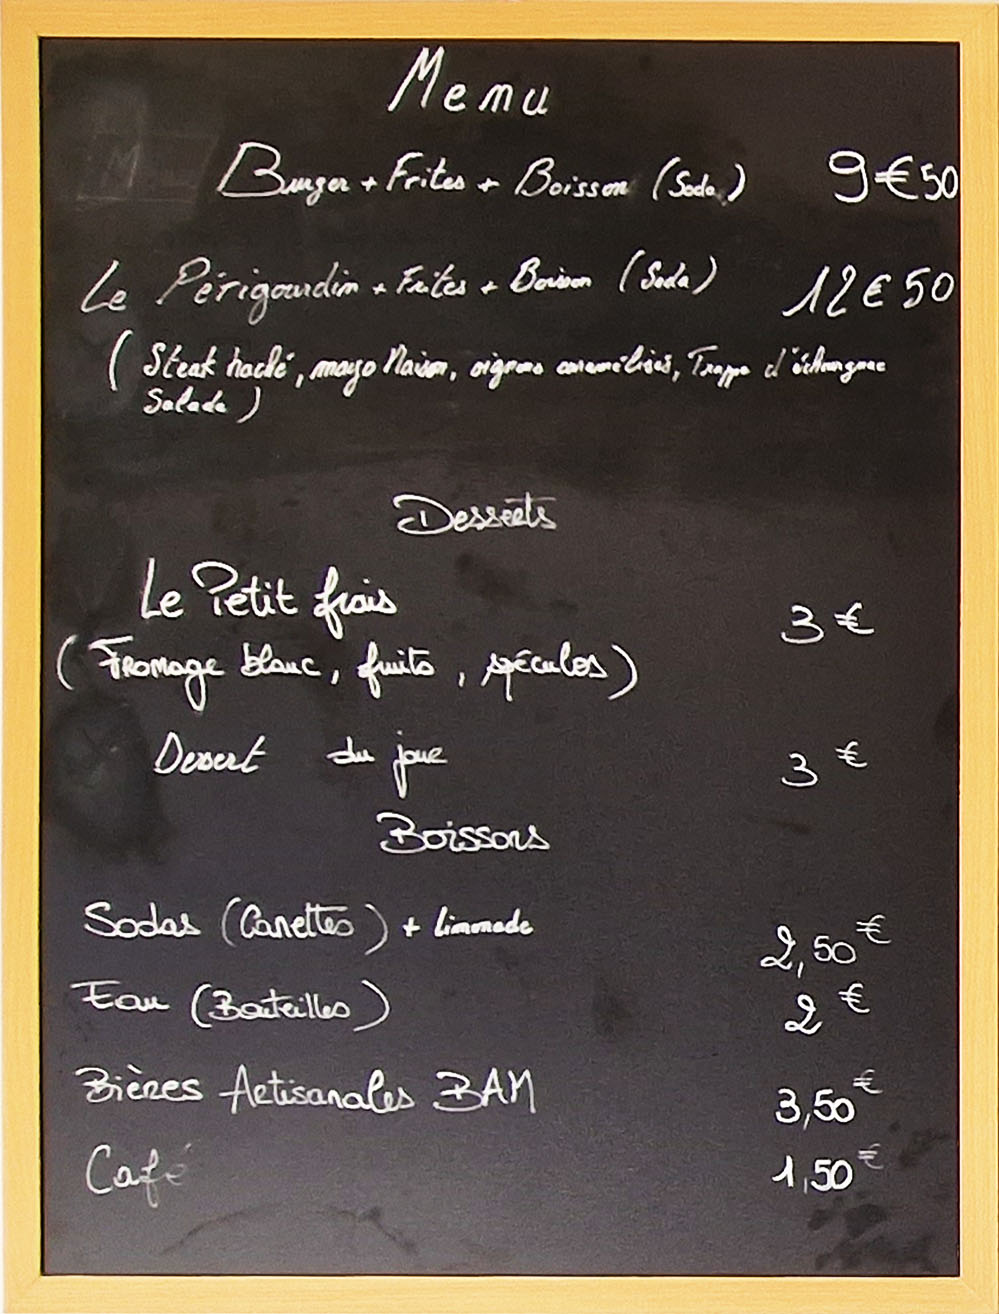 Menu
Burger + Frites + Boisson (Soda) 9€50
Le Périgourdin + Frites + Boisson (Soda) 12€50
(Steak haché, mayo Maison, oignons caramélisés, Trappe d'échourgnac
Salade)
Desserts
Le Petit frais 3€
(Fromage blanc, fruits, spéculos)
Dessert du jour 3€
Boissons
Sodas (Canettes) + limonade 2,50€
Eau (Bouteilles) 2€
Bières Artisanales BAM 3,50€
Café 1,50€